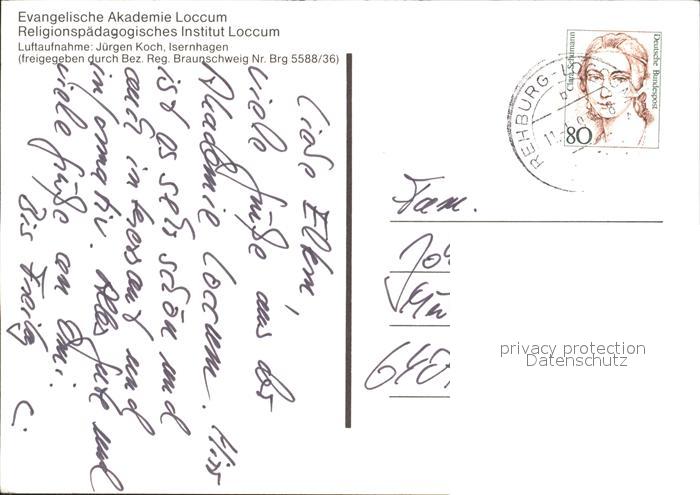 Evangelische Akademie Loccum
Religionspädagogisches Institut Loccum
Luftaufnahme: Jürgen Koch, Isernhagen
(freigegeben durch Bez. Reg. Braunschweig Nr. Brg 5588/36)
Liebe Eltern,
viele Grüße aus der
Akademie Loccum. Hier
ist es sehr schön und
auch interessant und
informativ. Alles Gute und
viele Grüße an Omi.
Bis Freitag
C.
Clara Schumann
Deutsche Bundespost
80
REHBURG-LO
11.
Fam.
640
privacy protection
Datenschutz